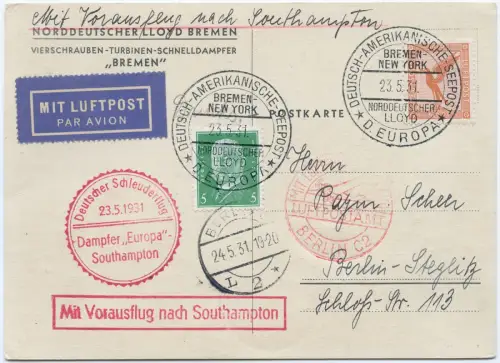 Mit Vorausflug nach Southampton
NORDDEUTSCHER LLOYD BREMEN
VIERSCHRAUBEN-TURBINEN-SCHNELLDAMPFER
„BREMEN"
MIT LUFTPOST
PAR AVION
DEUTSCH-AMERIKANISCHE SEEPOST
BREMEN-
NEW YORK
23.5.31
NORDDEUTSCHER
LLOYD
* D. EUROPA *
DEUTSCH-AMERIKANISCHE SEEPOST
BREMEN-
NEW YORK
23.5.31.
NORDDEUTSCHER
LLOYD
* D. EUROPA *
POSTKARTE
5 5
Herrn
Deutscher Schleuderflug
23.5.1931
Dampfer „Europa"-
Southampton
BERLIN C2
24.5.31.19-20
* L 2 *
Berlin-Steglitz
Schloß-Str. 113
Mit Vorausflug nach Southampton